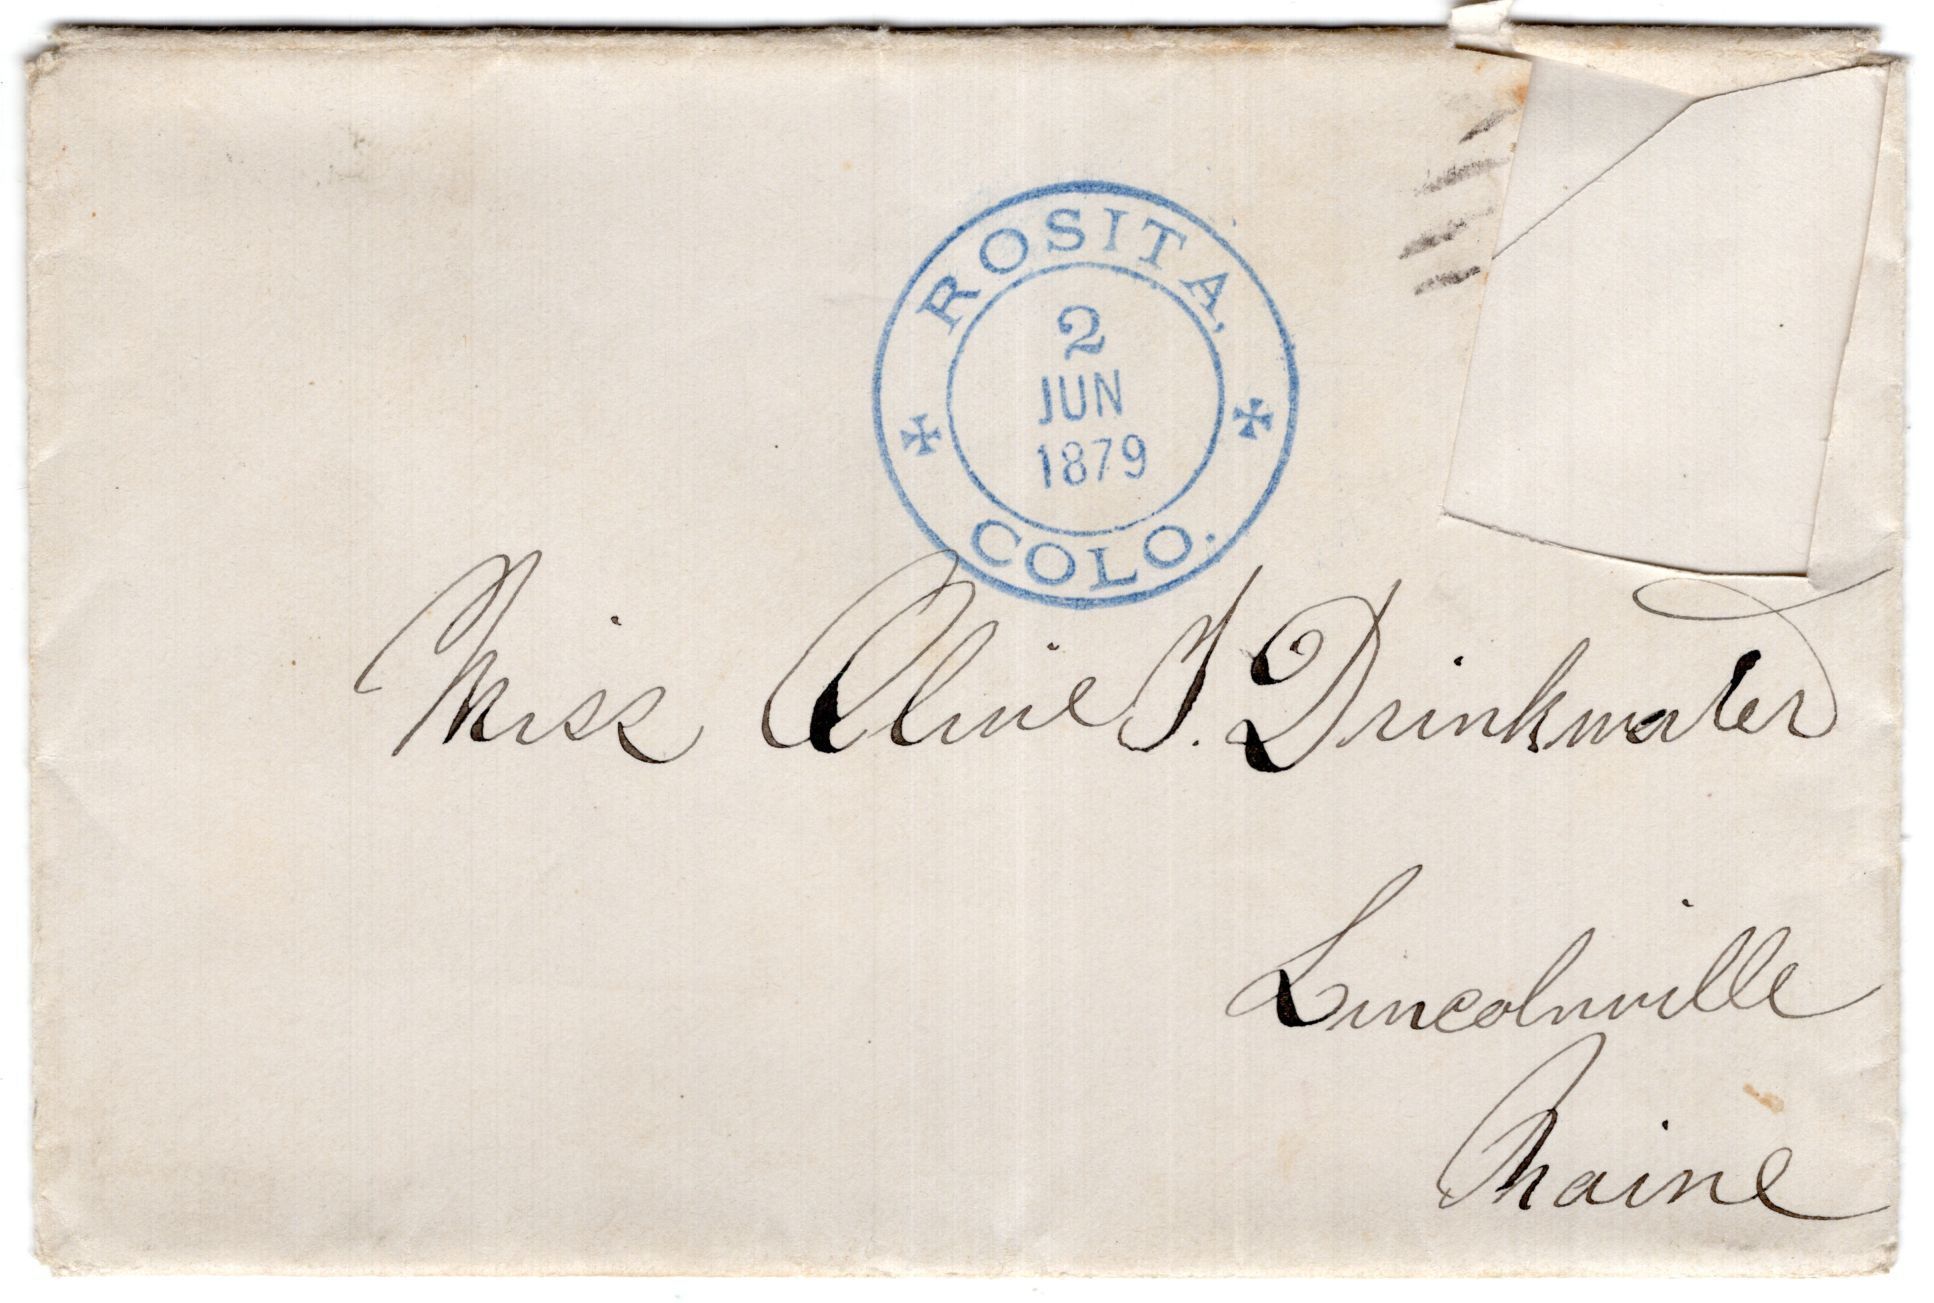 ROSITA,
2
JUN
1879
COLO.
Miss Olive J. Drinkwater
Lincolnville
Maine